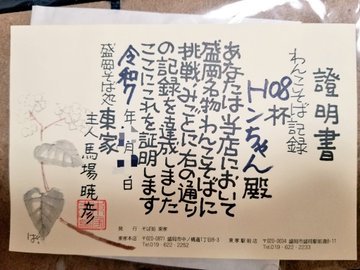 證明書
わんこそば記録
108杯
トンちゃん殿
あなたは当店において
盛岡名物わんこそばに
挑戦みごとに右の通り
の記録を達成しました
ここにこれを証明します
令和7年 月 日
盛岡そば処 東家
主人 馬場暁彦
発行 そば処 東家